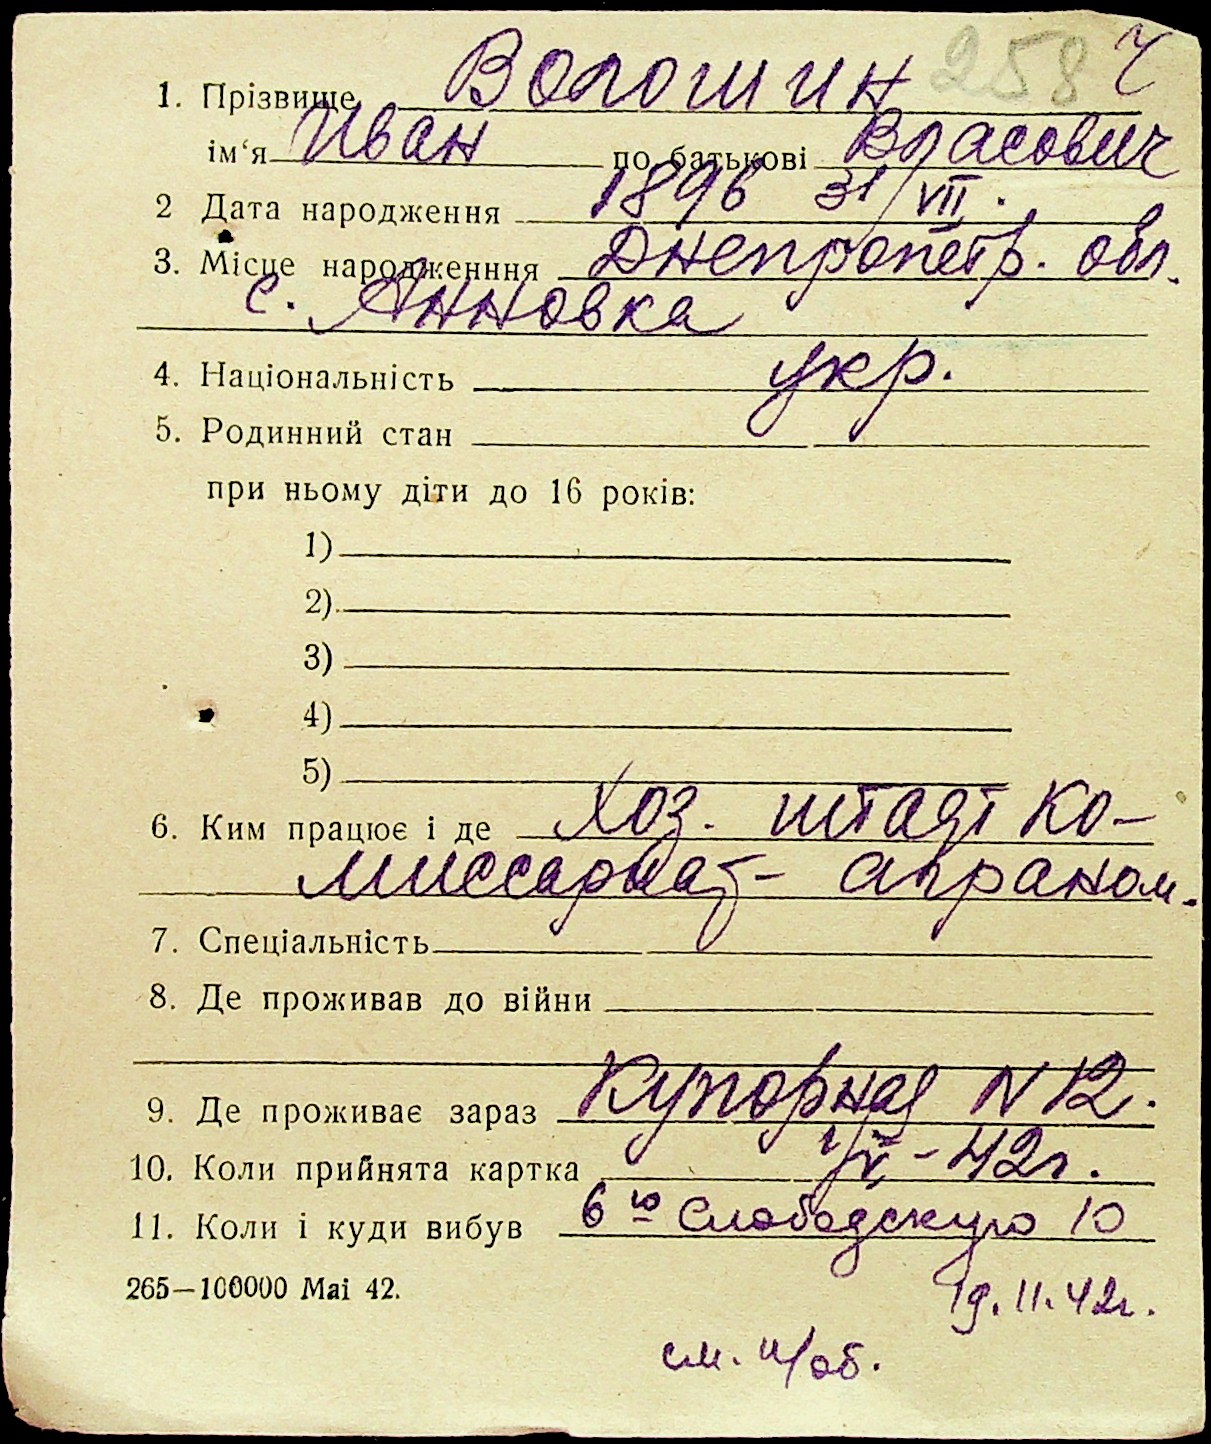 258 Ч
1. Прізвище Волошин
ім‘я Иван по батькові Власович
2 Дата народження 1896 31/VII.
3. Місце народженння Днепропетр. обл.
с. Анновка
4. Національність укр.
5. Родинний стан
при ньому діти до 16 років:
1)
2)
3)
4)
5)
6. Ким працює і де Хоз. штадт ко-
миссариат- аграном.
7. Спеціальність
8. Де проживав до війни
9. Де проживає зараз Купорная N 12.
10. Коли прийнята картка -42г.
11. Коли і куди вибув 6ую Слободскую 10
265—100000 Mai 42.
19.11.42г.
см. н/об.